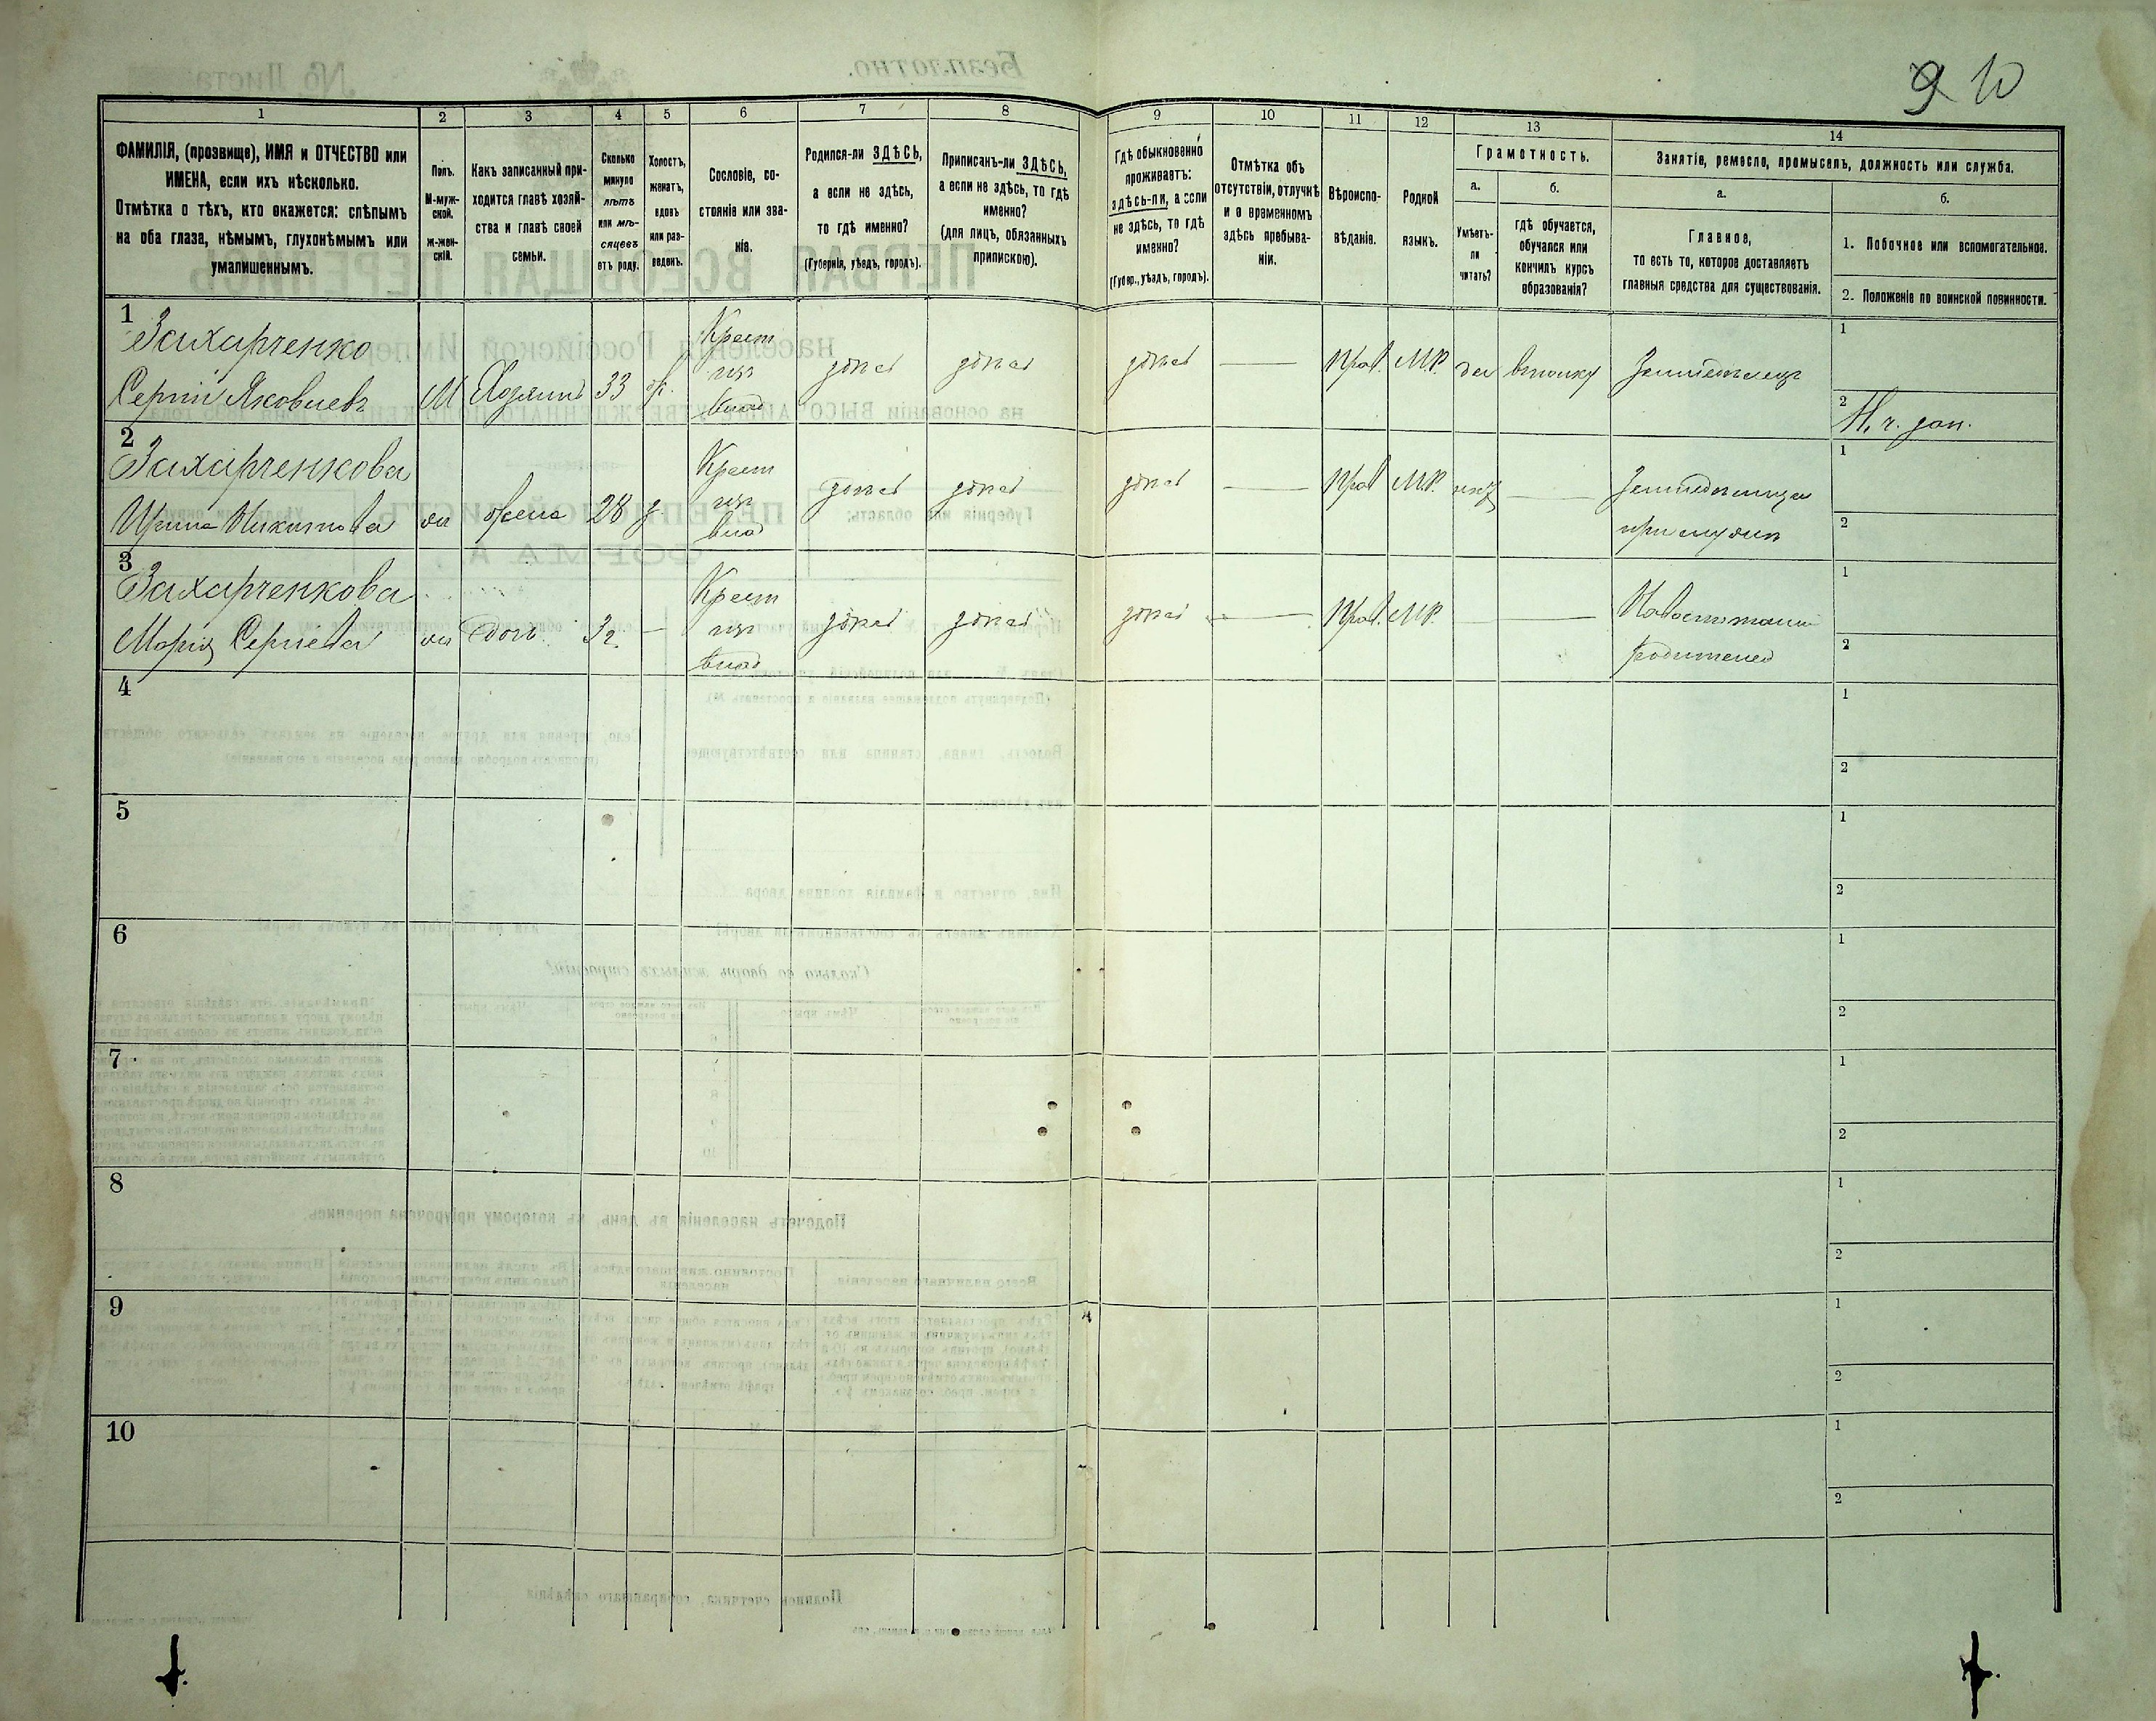 9 10
1 2 3 4 5 6 7 8 9 10 11 12 13 14
ФАМИЛІЯ, (прозвище), ИМЯ и ОТЧЕСТВО или
ИМЕНА, если ихъ нѣсколько.
Отмѣтка о тѣхъ, кто окажется: слѣпымъ
на оба глаза, нѣмымъ, глухонѣмымъ или
умалишеннымъ.
Полъ.
М-муж-
ской.
ж-жен-
скій.
Какъ записанный при-
ходится главѣ хозяй-
ства и главѣ своей
семьи.
Сколько
минуло
лѣтъ
или мѣ-
сяцевъ
отъ роду.
Холостъ,
женатъ,
вдовъ
или раз-
веденъ.
Сословіе, со-
стояніе или зва-
ніе.
Родился-ли ЗДѢСЬ,
а если не здѣсь,
то гдѣ именно?
(Губернія, уѣздъ, городъ).
Приписанъ-ли ЗДѢСЬ,
а если не здѣсь, то гдѣ
именно?
(для лицъ, обязанныхъ
припискою).
Гдѣ обыкновенно
проживаетъ:
здѣсь-ли, а если
не здѣсь, то гдѣ
именно?
(Губер., уѣздъ, городъ).
Отмѣтка объ
отсутствіи, отлучкѣ
и о временномъ
здѣсь пребыва-
ніи.
Вѣроиспо-
вѣданіе.
Родной
языкъ.
Грамотность.
а.
Умѣетъ-
ли
читать?
б.
гдѣ обучается,
обучался или
кончилъ курсъ
образованія?
Занятіе, ремесло, промыселъ, должность или служба.
а.
Главное,
то есть то, которое доставляетъ
главныя средства для существованія.
б.
1. Побочное или вспомогательное.
2. Положеніе по воинской повинности.
1
Захарченко
Сергій Яковлевъ М Хозяинъ 33
Крест
изъ
влад
здѣсь здѣсь здѣсь — Прав. М.Р. да
Земледѣлецъ
1
2
2
Захарченкова
Ирина Никитова ж жена 28
Крест
изъ
влад
здѣсь здѣсь здѣсь — Прав М.Р. —
1
2
3
Захарченкова
Марія Сергіева ж дочь
Крест
изъ
влад
здѣсь здѣсь здѣсь — Прав. М.Р. —
родителей
1
2
4
1
2
5
1
2
6
1
2
7
1
2
8
1
2
9
1
2
10
1
2